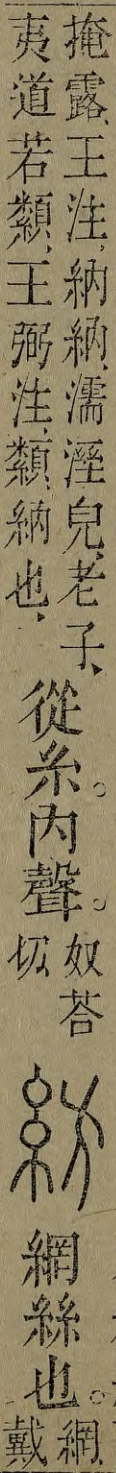 掩露、王注、納納、濡溼皃、老子、
夷道若纇、王弼注、纇、納也、
從糸。內聲。
奴荅
切
紡
網絲也。
網
戴